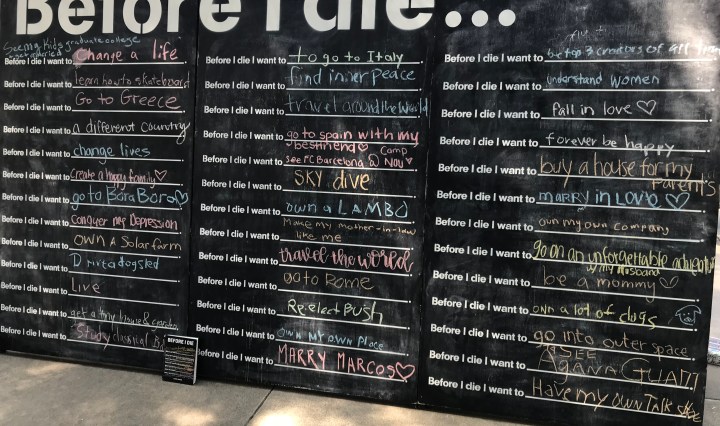 Before I die...
Seeing kids graduate college
get married
Before I die I want to change a life
Before I die I want to learn how to skateboard
Before I die I want to Go to Greece
Before I die I want to a different country
Before I die I want to change lives
Before I die I want to Create a happy family♡
Before I die I want to go to Bora Bora♡
Before I die I want to Conquer my Depression
Before I die I want to own A Solar farm
Before I die I want to Drive a dogsled
Before I die I want to Live
Before I die I want to get a tiny house &
Before I die I want to Study classical
BEFORE I DIE
Before I die I want to to go to Italy
Before I die I want to find inner peace
Before I die I want to travel around the world
Before I die I want to go to spain with my
bestfriend♡ Camp
Before I die I want to See FC Barcelona @ Nou♡
Before I die I want to SKY dive
Before I die I want to own a LAMBO
Make my mother-in-law
Before I die I want to like me
Before I die I want to travel the world
Before I die I want to go to Rome
Before I die I want to Re:elect Bush
Before I die I want to own My own Place
Before I die I want to MARRY MARCOS♡
Before I die I want to be top 3 creators of all
Before I die I want to understand women
Before I die I want to fall in love♡
Before I die I want to forever be happy
Before I die I want to buy a house for my
Parent's
Before I die I want to marry in Love♡
Before I die I want to own my own company
Before I die I want to go on an unforgettable adventure
w/ my husband
Before I die I want to be a mommy♡
Before I die I want to own a lot of dogs
Before I die I want to go into outer space
SEE
Before I die I want to AGANA GUAM
Before I die I want to Have my own Talk